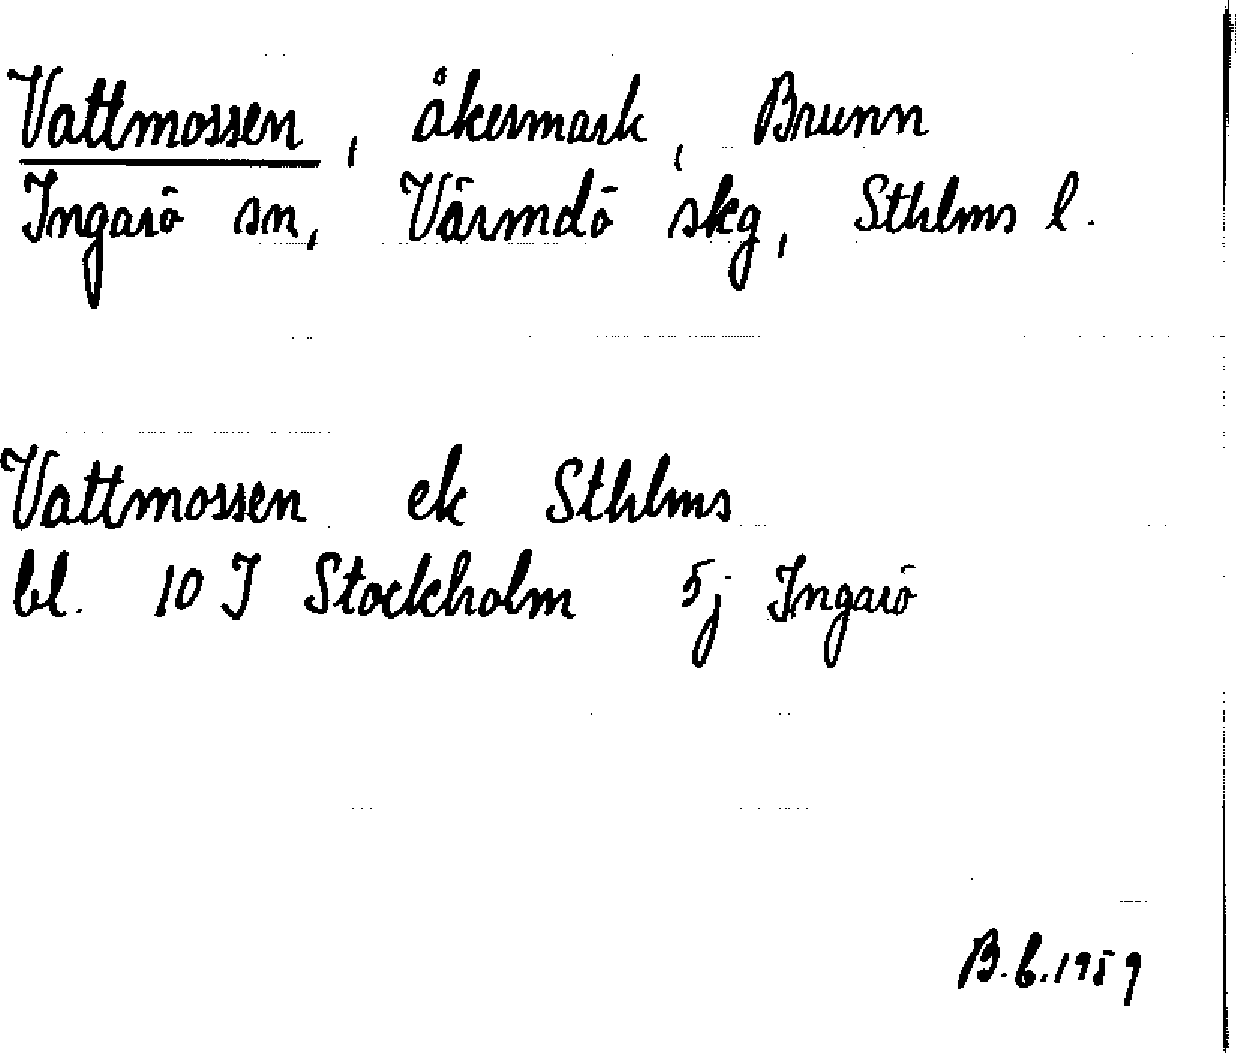 Vattmossen, åkermark, Brunn
Ingarö sn, Värmdö skg, Sthlms l.
Vattmossen ek Sthlms
bl. 10 J Stockholm 5j Ingarö
B.b.1959